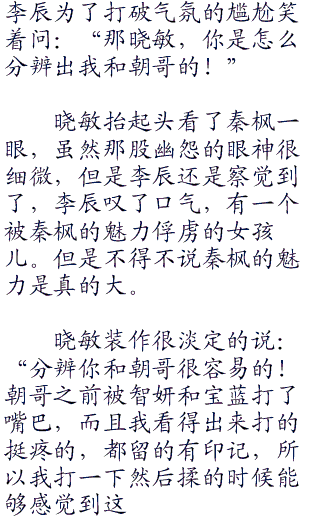 李辰为了打破气氛的尴尬笑
着问：“那晓敏，你是怎么
分辨出我和朝哥的！”
晓敏抬起头看了秦枫一
眼，虽然那股幽怨的眼神很
细微，但是李辰还是察觉到
了，李辰叹了口气，有一个
被秦枫的魅力俘虏的女孩
儿。但是不得不说秦枫的魅
力是真的大。
晓敏装作很淡定的说：
“分辨你和朝哥很容易的！
朝哥之前被智妍和宝蓝打了
嘴巴，而且我看得出来打的
挺疼的，都留的有印记，所
以我打一下然后揉的时候能
够感觉到这